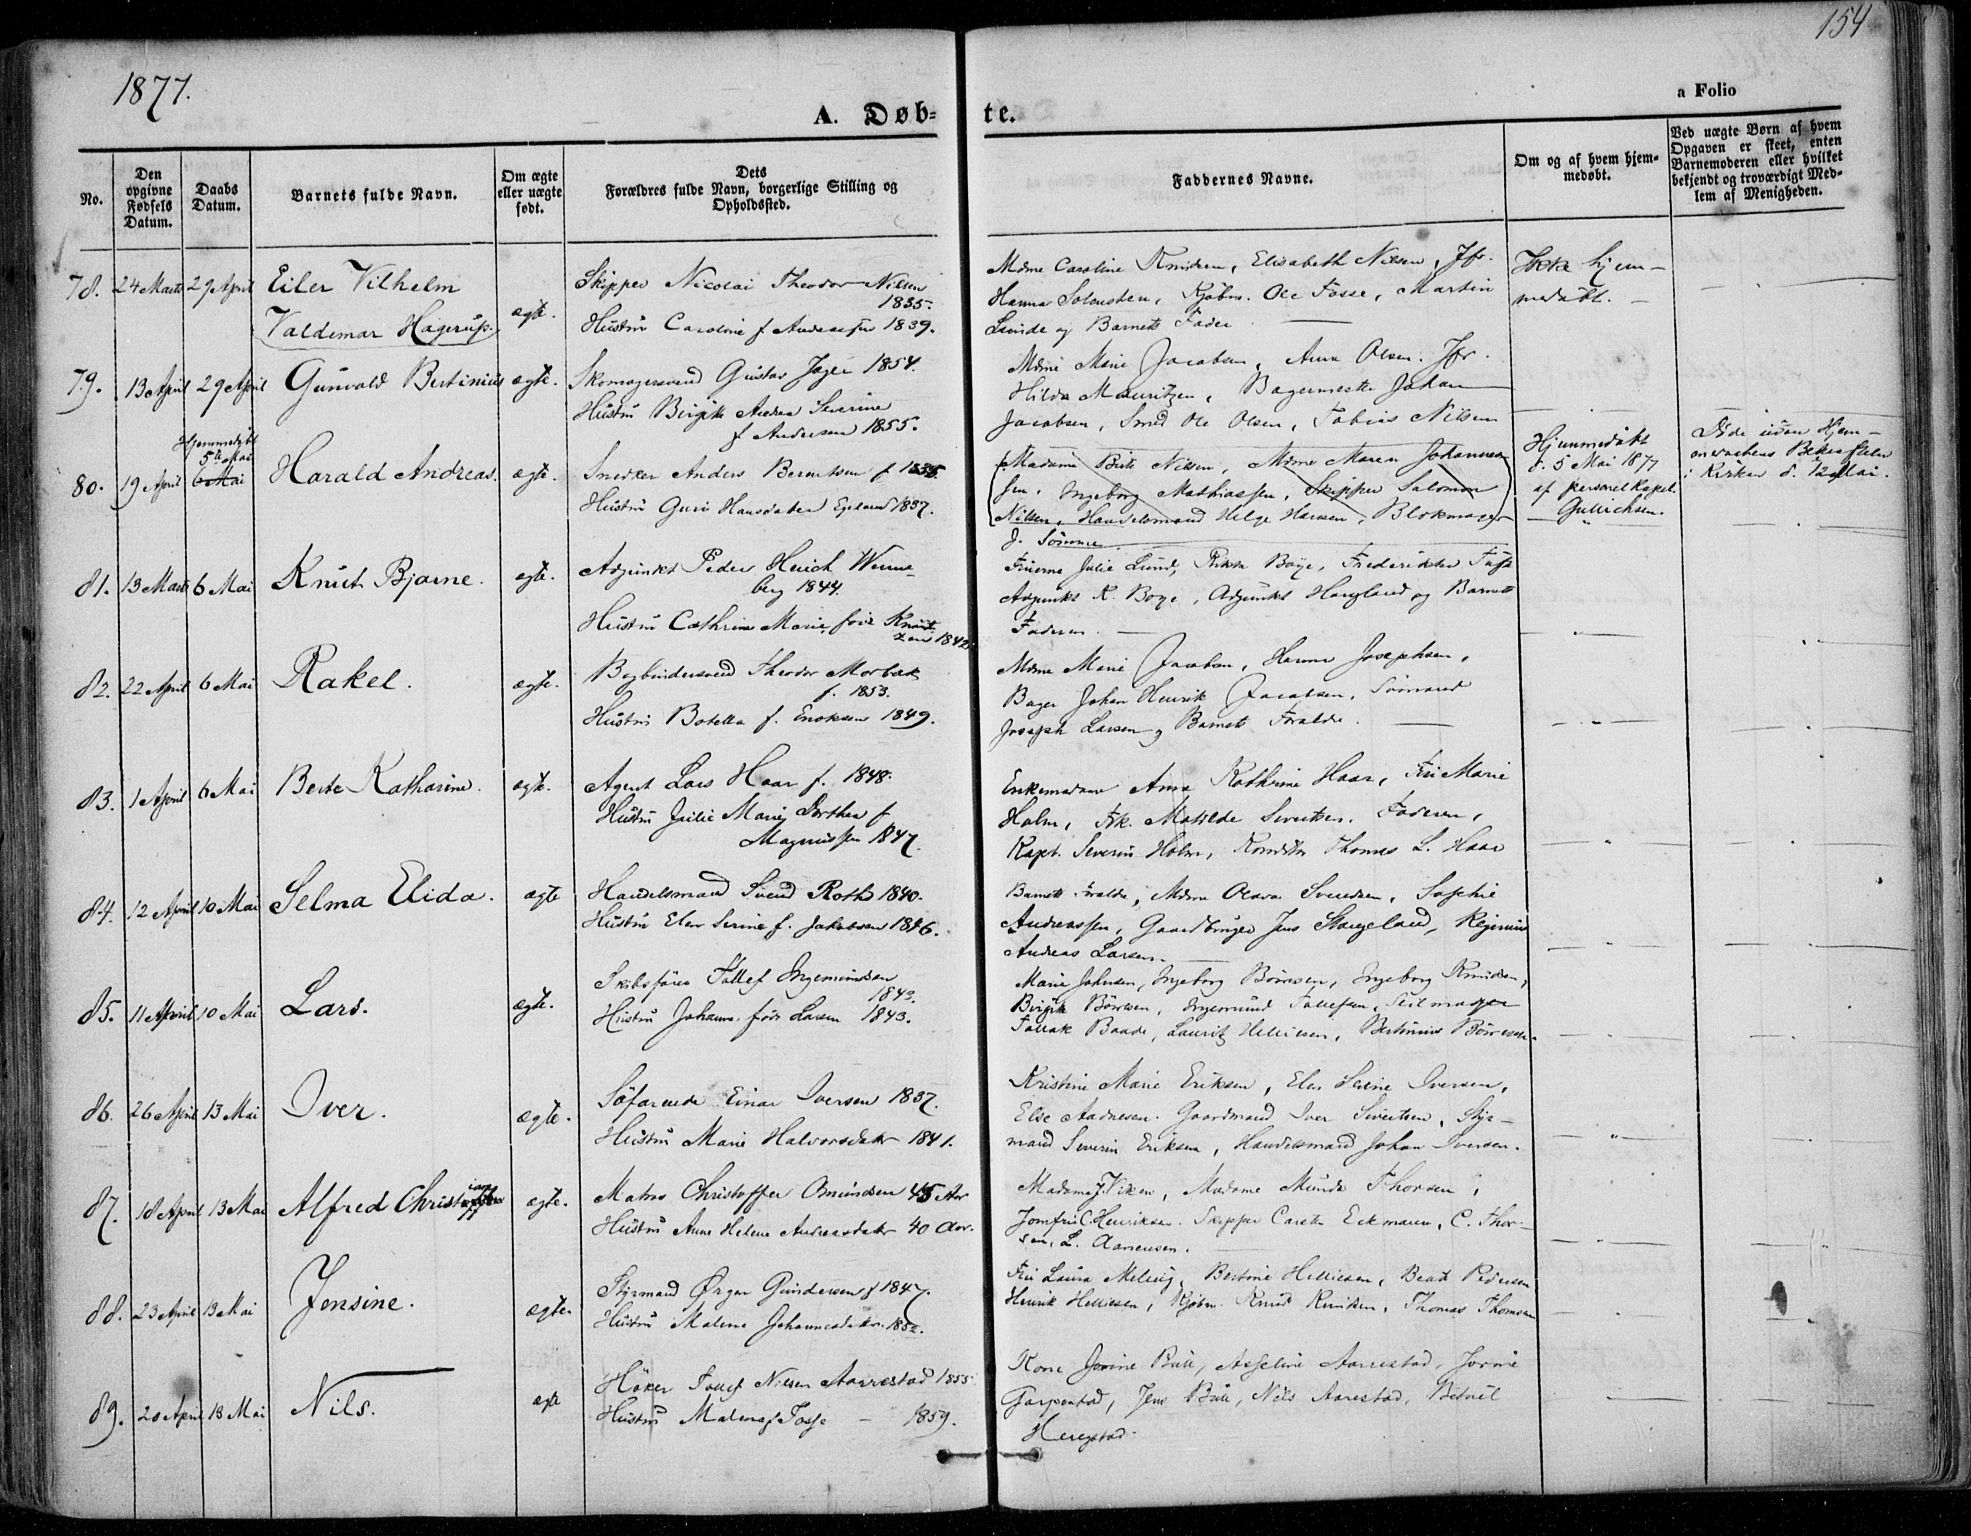 1877.
154
A. Døb-
te.
a Folio
No.
Den opgivne Fødsels Datum.
Daabs Datum.
Barnets fulde Navn.
Om ægte eller uægte født.
Dets Forældres fulde Navn, borgerlige Stilling og Opholdssted.
Faddernes Navne.
Om og af hvem hjemmedøbt.
Ved uægte Børn af hvem Opgaven er skeet, enten Barnemoderen eller hvilket bekjendt og troværdigt Medlem af Menigheden.
78. 24 Marts 29 April Eiler Vilhelm
Valdemar Hagerup. ægte.
Skipper Nicolai Theodor Nilsen
1835.
Hustru Caroline f Andreassen 1839.
Mdme Caroline Knudsen, Elisabeth Nilsen, Jfr.
Hanna Salvesen, Kjøbm. Ole Fosse, Martin
Lunde og Barnets Fader
Ikke hjem-
medøbt.
79. 13 April 29 April Gunvald Bertinius ægte.
Skomagersvend Gustav Jæger 1854.
Hustru Birgitte Andrea Severine
f Andersen 1855.
Mdme Marie Jacobsen, Anna Olsen. Jfr.
Hilda Mauritzen, Bagermester Johan
Jacobsen, Smed Ole Olsen, Tobias Nilsen
80. 19 April Hjemmedøbt
5te Mai
6 Mai Harald Andreas. ægte.
Snedker Anders Berentsen f 1835.
Hustru Guri Hansdatter 1837.
Madame Berte Nilsen, Mdme Maren Johannes-
sen, Ingeborg Mathiassen, Skipper Salomon
Nilsen, Handelsmand Helge Hansen, Blokmager
J. Sömme
Hjemmedøbt
d. 5 Mai 1877
af personel Kapel.
Gullichsen.
Døde uden Hjem-
medaabens Bekræftelse
i Kirken d. 12 Mai.
81. 13 Marts 6 Mai Knut Bjarne. ægte.
Adjunkt Peder Henrik Wenne-
berg 1844.
Hustru Cathrine Marie født Knud-
zen 1842.
Fruerne Julie Lund, Rikka Boye, Frederikke
Adjunkt K. Boye, Adjunkt Haugland og Barnets
Faderen.
82. 22 April 6 Mai Rakel. ægte.
Bogbindersvend Theodor Morbæk
f. 1853.
Hustru Botella f. Enoksen 1849.
Mdme Marie Jacobsen, Hanna Josephsen,
Bager Johan Henrik Jacobsen, Sømand
Joseph Larsen og Barnets Forældre.
83. 1 April 6 Mai Berte Katharine. ægte.
Agent Lars Haar f. 1848.
Hustru Julie Marie Dorthea f
Magnussen 1847.
Enkemadame Anna Kathrine Haar, Fru Marie
Holm, Frk. Matilde Sivertsen. Faderen,
Kapt. Severin Holm, Thomas L. Haar
84. 12 April 10 Mai Selma Elida. ægte
Handelsmand Svend Roth 1840.
Hustru Elen Serine f. Jakobsen 1846.
Barnets Forældre, Mdme Olava Svendsen, Sophie
Andreassen, Gaardbruger Jens Stangeland, Reginius
Andreas Larsen.
85. 11 April 10 Mai Lars. ægte.
Skibsfører Tollef Ingemundsen
1843.
Hustru Johanne født Larsen 1843.
Marie Johnsen, Ingeborg Børresen, Ingeborg Knudsen,
Birgitte Börresen, Ingemund Tollefsen, Seilmager
Tollak Baade, Lauritz Helliesen, Bertinius Börresen.
86. 26 April 13 Mai Iver. ægte.
Söfarende Einar Iversen 1837.
Hustru Marie Halvorsdatter 1841.
Kristine Marie Eriksen, Elen Serine Iversen,
Else Aadnesen. Gaardmand Iver Sivertsen, Styr-
mand Severin Eriksen, Handelsmand Johan Iversen.
87. 18 April 13 Mai Alfred Christian ægte.
Matros Christoffer Omundsen 45 Aar
Hustru Anne Helene Andreasdatter 40 Aar.
Madame J. Viken, Madame Munda Thorsen,
Jomfru C. Henriksen. Skipper Eckmann, C. Thor-
sen, L. Aanensen.
88. 23 April 13 Mai Jensine. ægte.
Styrmand Ørgen Gundersen f 1847.
Hustru Malene Johannesdatter 1852.
Fru Laura Meling, Bertine Helliesen, Beate Pedersen
Henrik Helliesen, Kjøbm. Knud Knudsen, Thomas Thomsen
89. 20 April 13 Mai Nils. ægte
Höker Tollef Nilsen Aarrestad 1855
Hustru Malena f Fosse – 1859.
Kone Jorine Bull, Asseline Aarrestad, Jorine
Garpestad, Jens Bull, Nils Aarestad, Betuel
Heregstad.